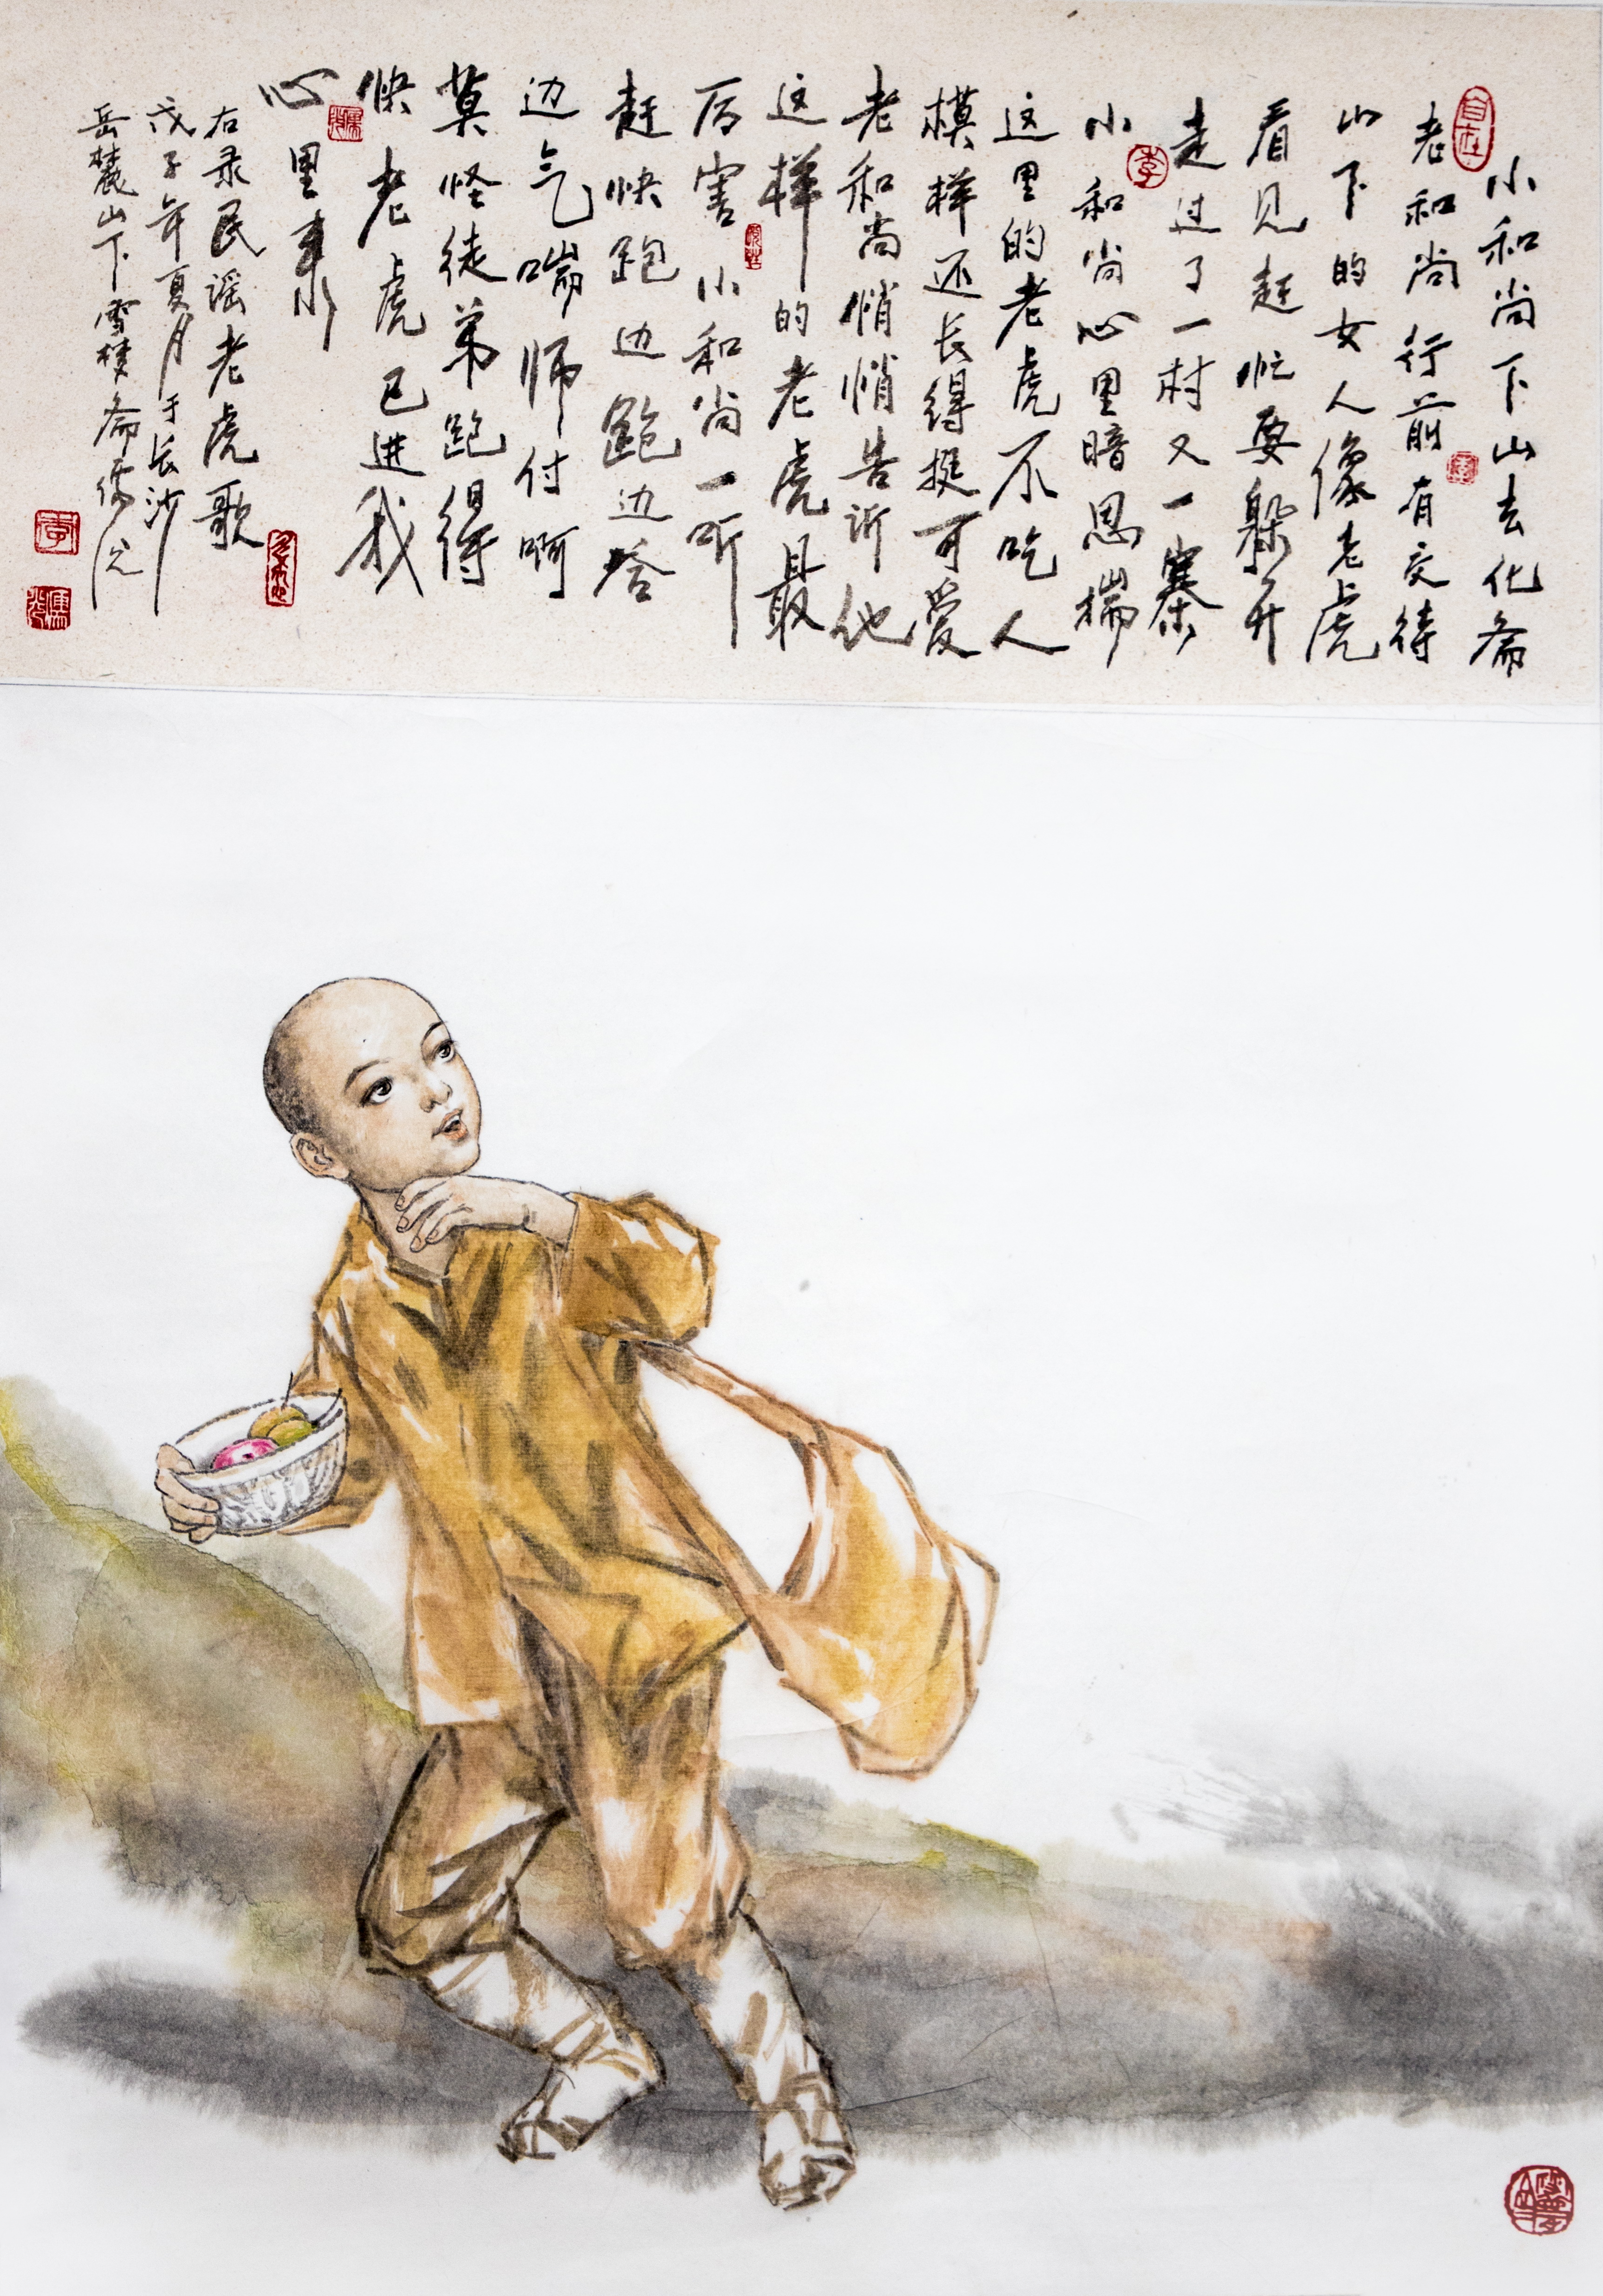 小和尚下山去化斋
老和尚行前有交待
山下的女人像老虎
看见赶忙要躲开
走过了一村又一寨
小和尚心里暗思揣
这里的老虎不吃人
模样还长得挺可爱
老和尚悄悄告诉他
这样的老虎最
厉害小和尚一听
赶快跑边跑边答
边气喘师付啊
莫怪徒弟跑得
快老虎已进我
心里来
右录民谣老虎歌
戊子年夏月于长沙
岳麓山下雪梦斋
自在
李
李